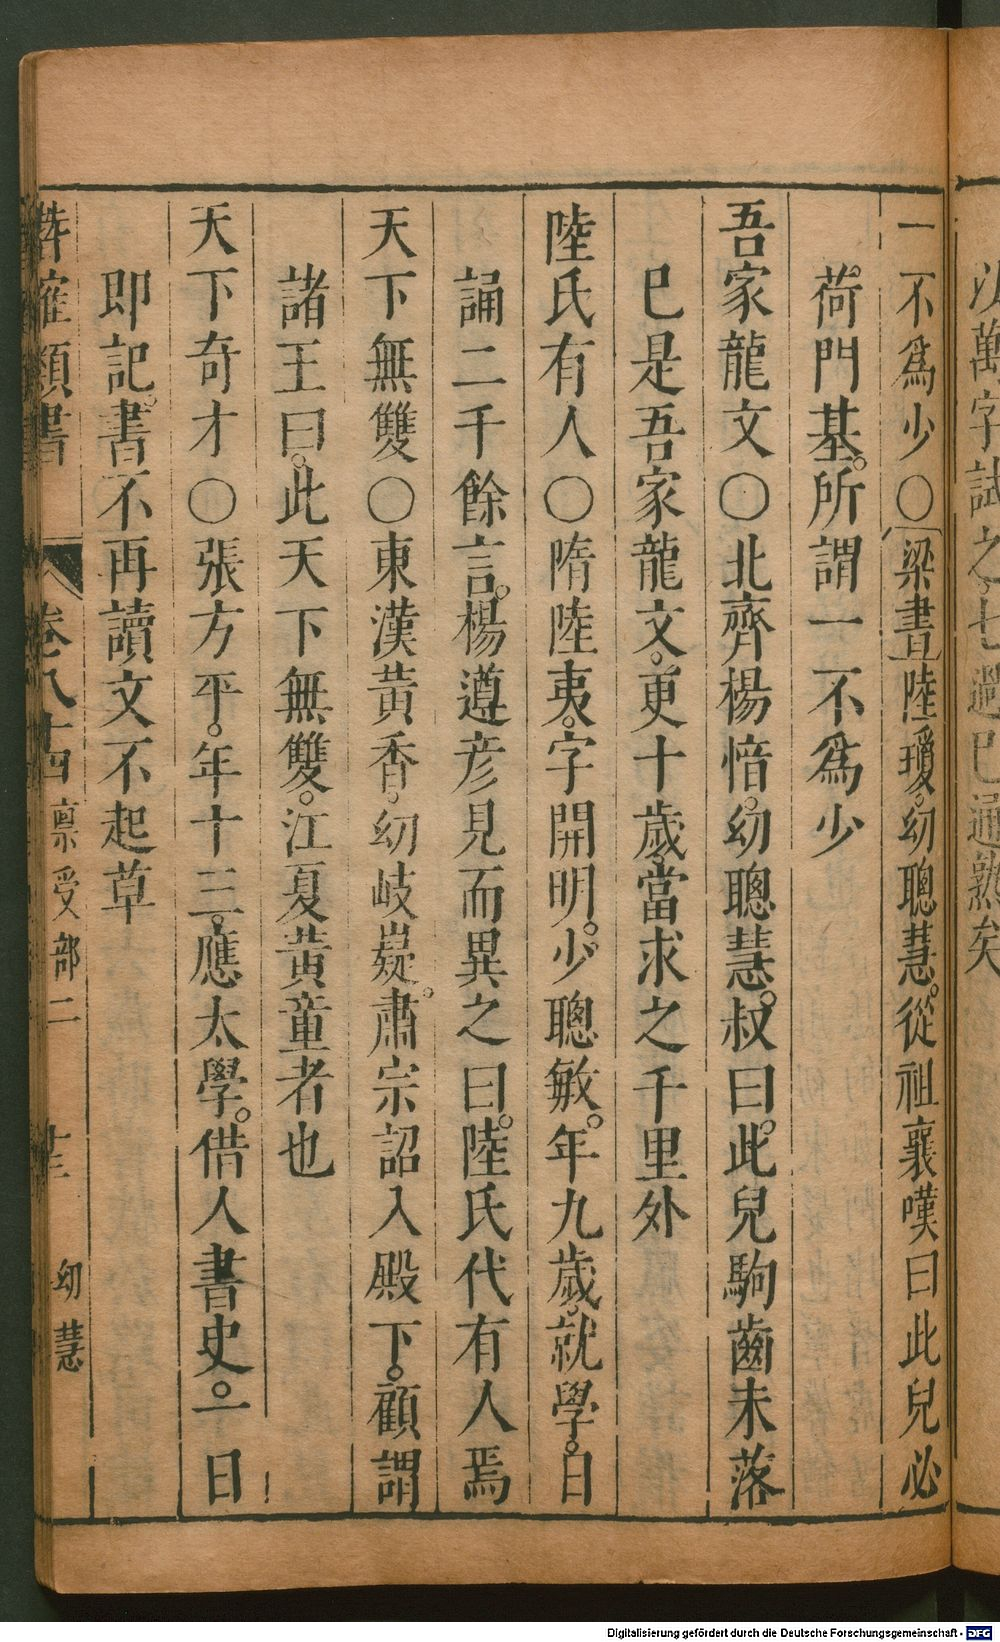 汝萬字試之七遍已通熟矣
一不爲少○梁書陸瓊幼聰慧從祖襄嘆曰此兒必
荷門基所謂一不爲少
吾家龍文○北齊楊愔幼聰慧叔曰此兒駒齒未落
已是吾家龍文更十歲當求之千里外
陸氏有人○隋陸夷字開明少聰敏年九歲就學日
誦二千餘言楊遵彥見而異之曰陸氏代有人焉
天下無雙○東漢黃香幼岐嶷肅宗詔入殿下顧謂
諸王曰此天下無雙江夏黃童者也
天下奇才○張方平年十三應太學借人書史一日
即記書不再讀文不起草
類書 卷八十四 稟受部二 幼慧
Digitalisierung gefördert durch die Deutsche Forschungsgemeinschaft - DFG